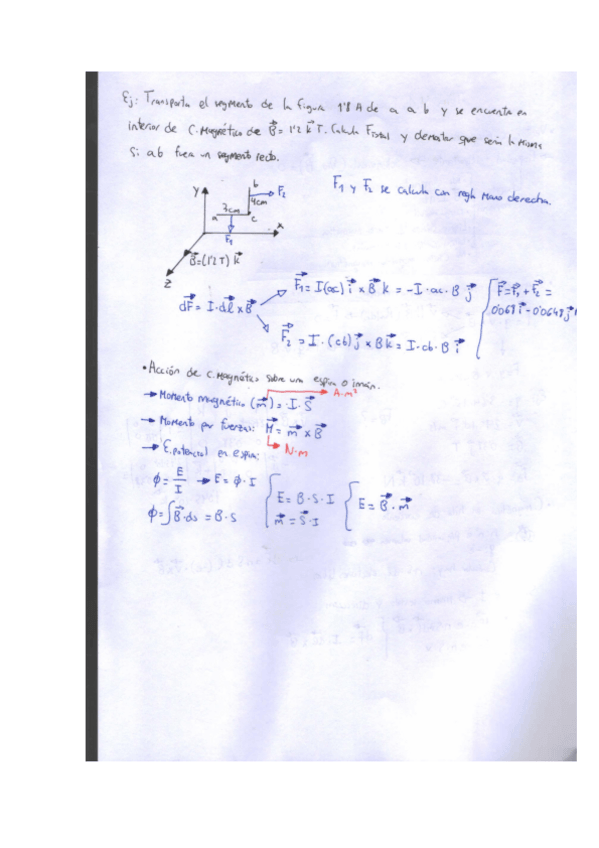 Ej: Transporta el segmento de la figura 1'8 A de a a b y se encuentra en
interior de C. Magnético de B⃗ = 1'2 k⃗ T. Calcula Ftotal y demostrar que sería la misma
si ab fuera un segmento recto.
F₁ y F₂ se calcula con regla mano derecha.
y
b
F₂
4cm
3cm
a
c
x
F₁
B⃗=(1'2 T) k⃗
z
dF⃗ = I·dl⃗ x B⃗
F₁⃗ = I(ac) i⃗ x B⃗ k = -I·ac·B j⃗
F₂⃗ = I·(cb) j⃗ x B k⃗ = I·cb·B i⃗
F⃗=F₁⃗+F₂⃗ =
0'068 i⃗ - 0'0648 j⃗ N
• Acción de C. Magnético sobre una espira o imán.
→ Momento magnético (m⃗) = I·S⃗
A·m²
→ Momento par fuerzas: M⃗ = m⃗ x B⃗
N·m
→ E. potencial en espira:
ϕ = E/I → E = ϕ·I
ϕ = ∫B⃗·ds = B·S
E = B·S·I
m⃗ = S⃗·I
E = B⃗·m⃗